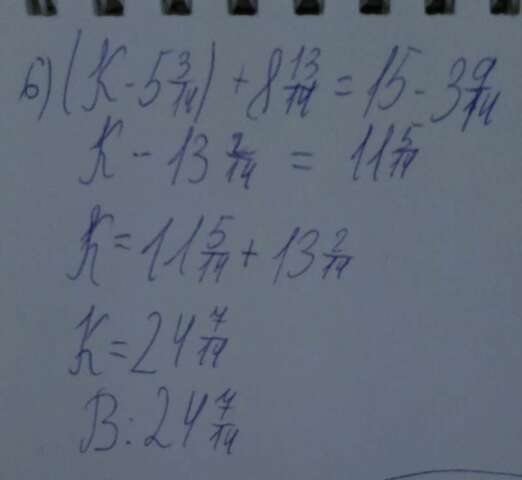 б) (К - 5 3/14) + 8 13/14 = 15 - 3 9/14
К - 13 2/14 = 11 5/14
К = 11 5/14 + 13 2/14
К = 24 7/14
В: 24 7/14